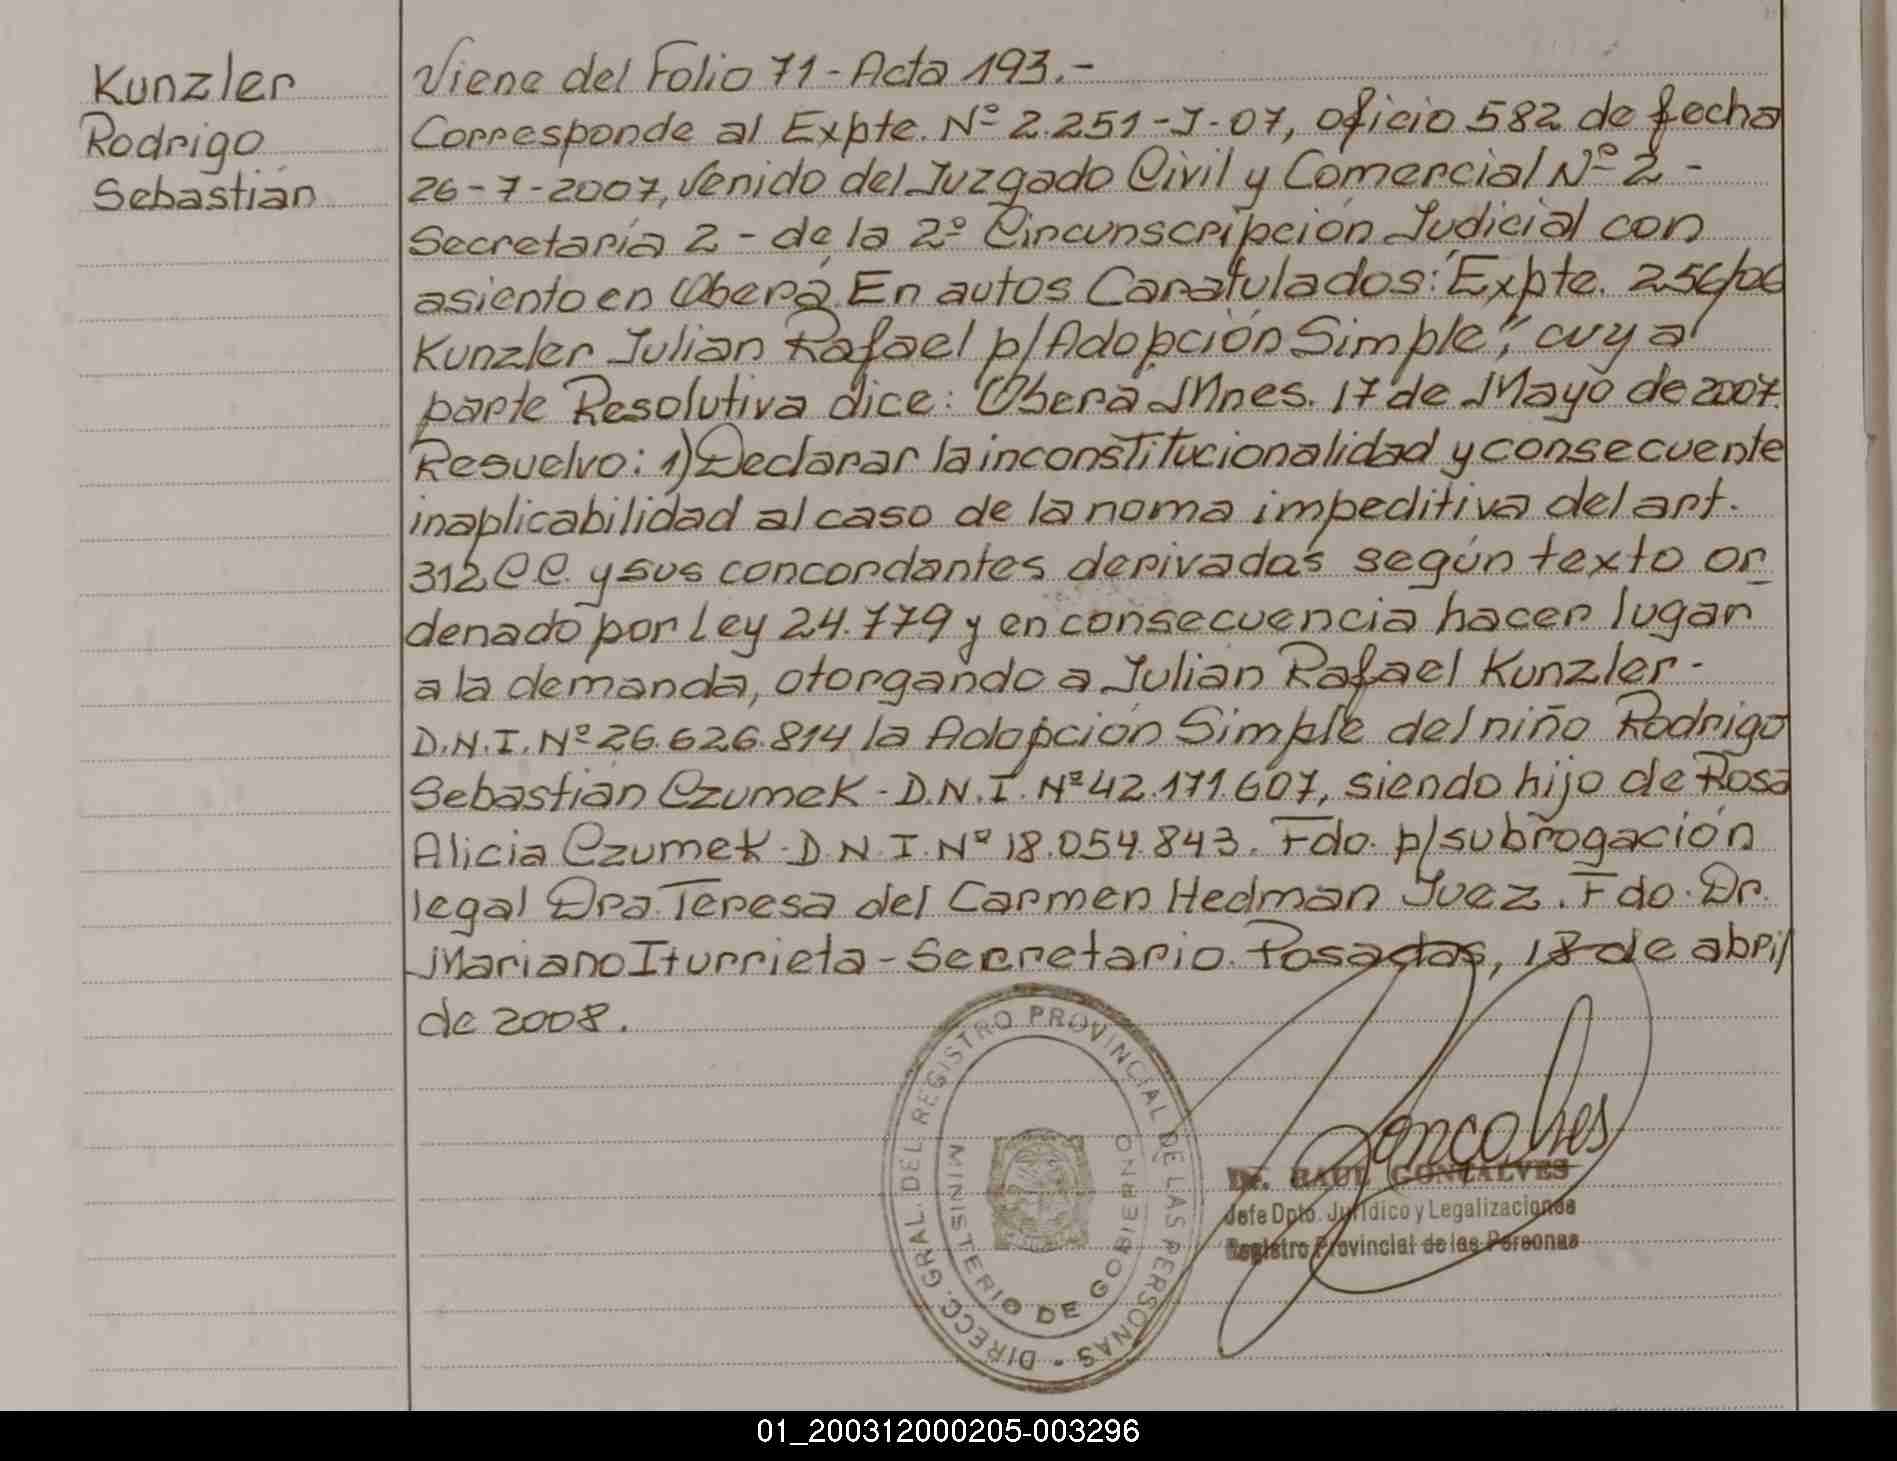 Kunzler
Rodrigo
Sebastián
Viene del Folio 71 - Acta 193.-
Corresponde al Expte. Nº 2.251-J-07, oficio 582 de fecha
26-7-2007, venido del Juzgado Civil y Comercial Nº 2 -
Secretaría 2 - de la 2º Circunscripción Judicial con
asiento en Oberá. En autos Caratulados: "Expte. 256/06
Kunzler Julian Rafael p/Adopción Simple", cuya
parte Resolutiva dice: Oberá Mnes. 17 de Mayo de 2007.
Resuelvo: 1) Declarar la inconstitucionalidad y consecuente
inaplicabilidad al caso de la noma impeditiva del art.
312 C.C. y sus concordantes derivadas según texto or
denado por Ley 24.779 y en consecuencia hacer lugar
a la demanda, otorgando a Julián Rafael Kunzler -
D.N.I. Nº 26.626.814 la Adopción Simple del niño Rodrigo
Sebastián Czumek - D.N.I. Nº 42.171.607, siendo hijo de Rosa
Alicia Czumek - D.N.I. Nº 18.054.843. Fdo. p/subrogación
legal Dra. Teresa del Carmen Hedman Juez. Fdo. Dr.
Mariano Iturrieta - Secretario. Posadas, 18 de abril
de 2008.
DIRECC. GRAL. DEL REGISTRO PROVINCIAL DE LAS PERSONAS -
MINISTERIO DE GOBIERNO
Goncalves
Dr. RAUL GONCALVES
Jefe Dpto. Jurídico y Legalizaciones
Registro Provincial de las Personas
01_200312000205-003296